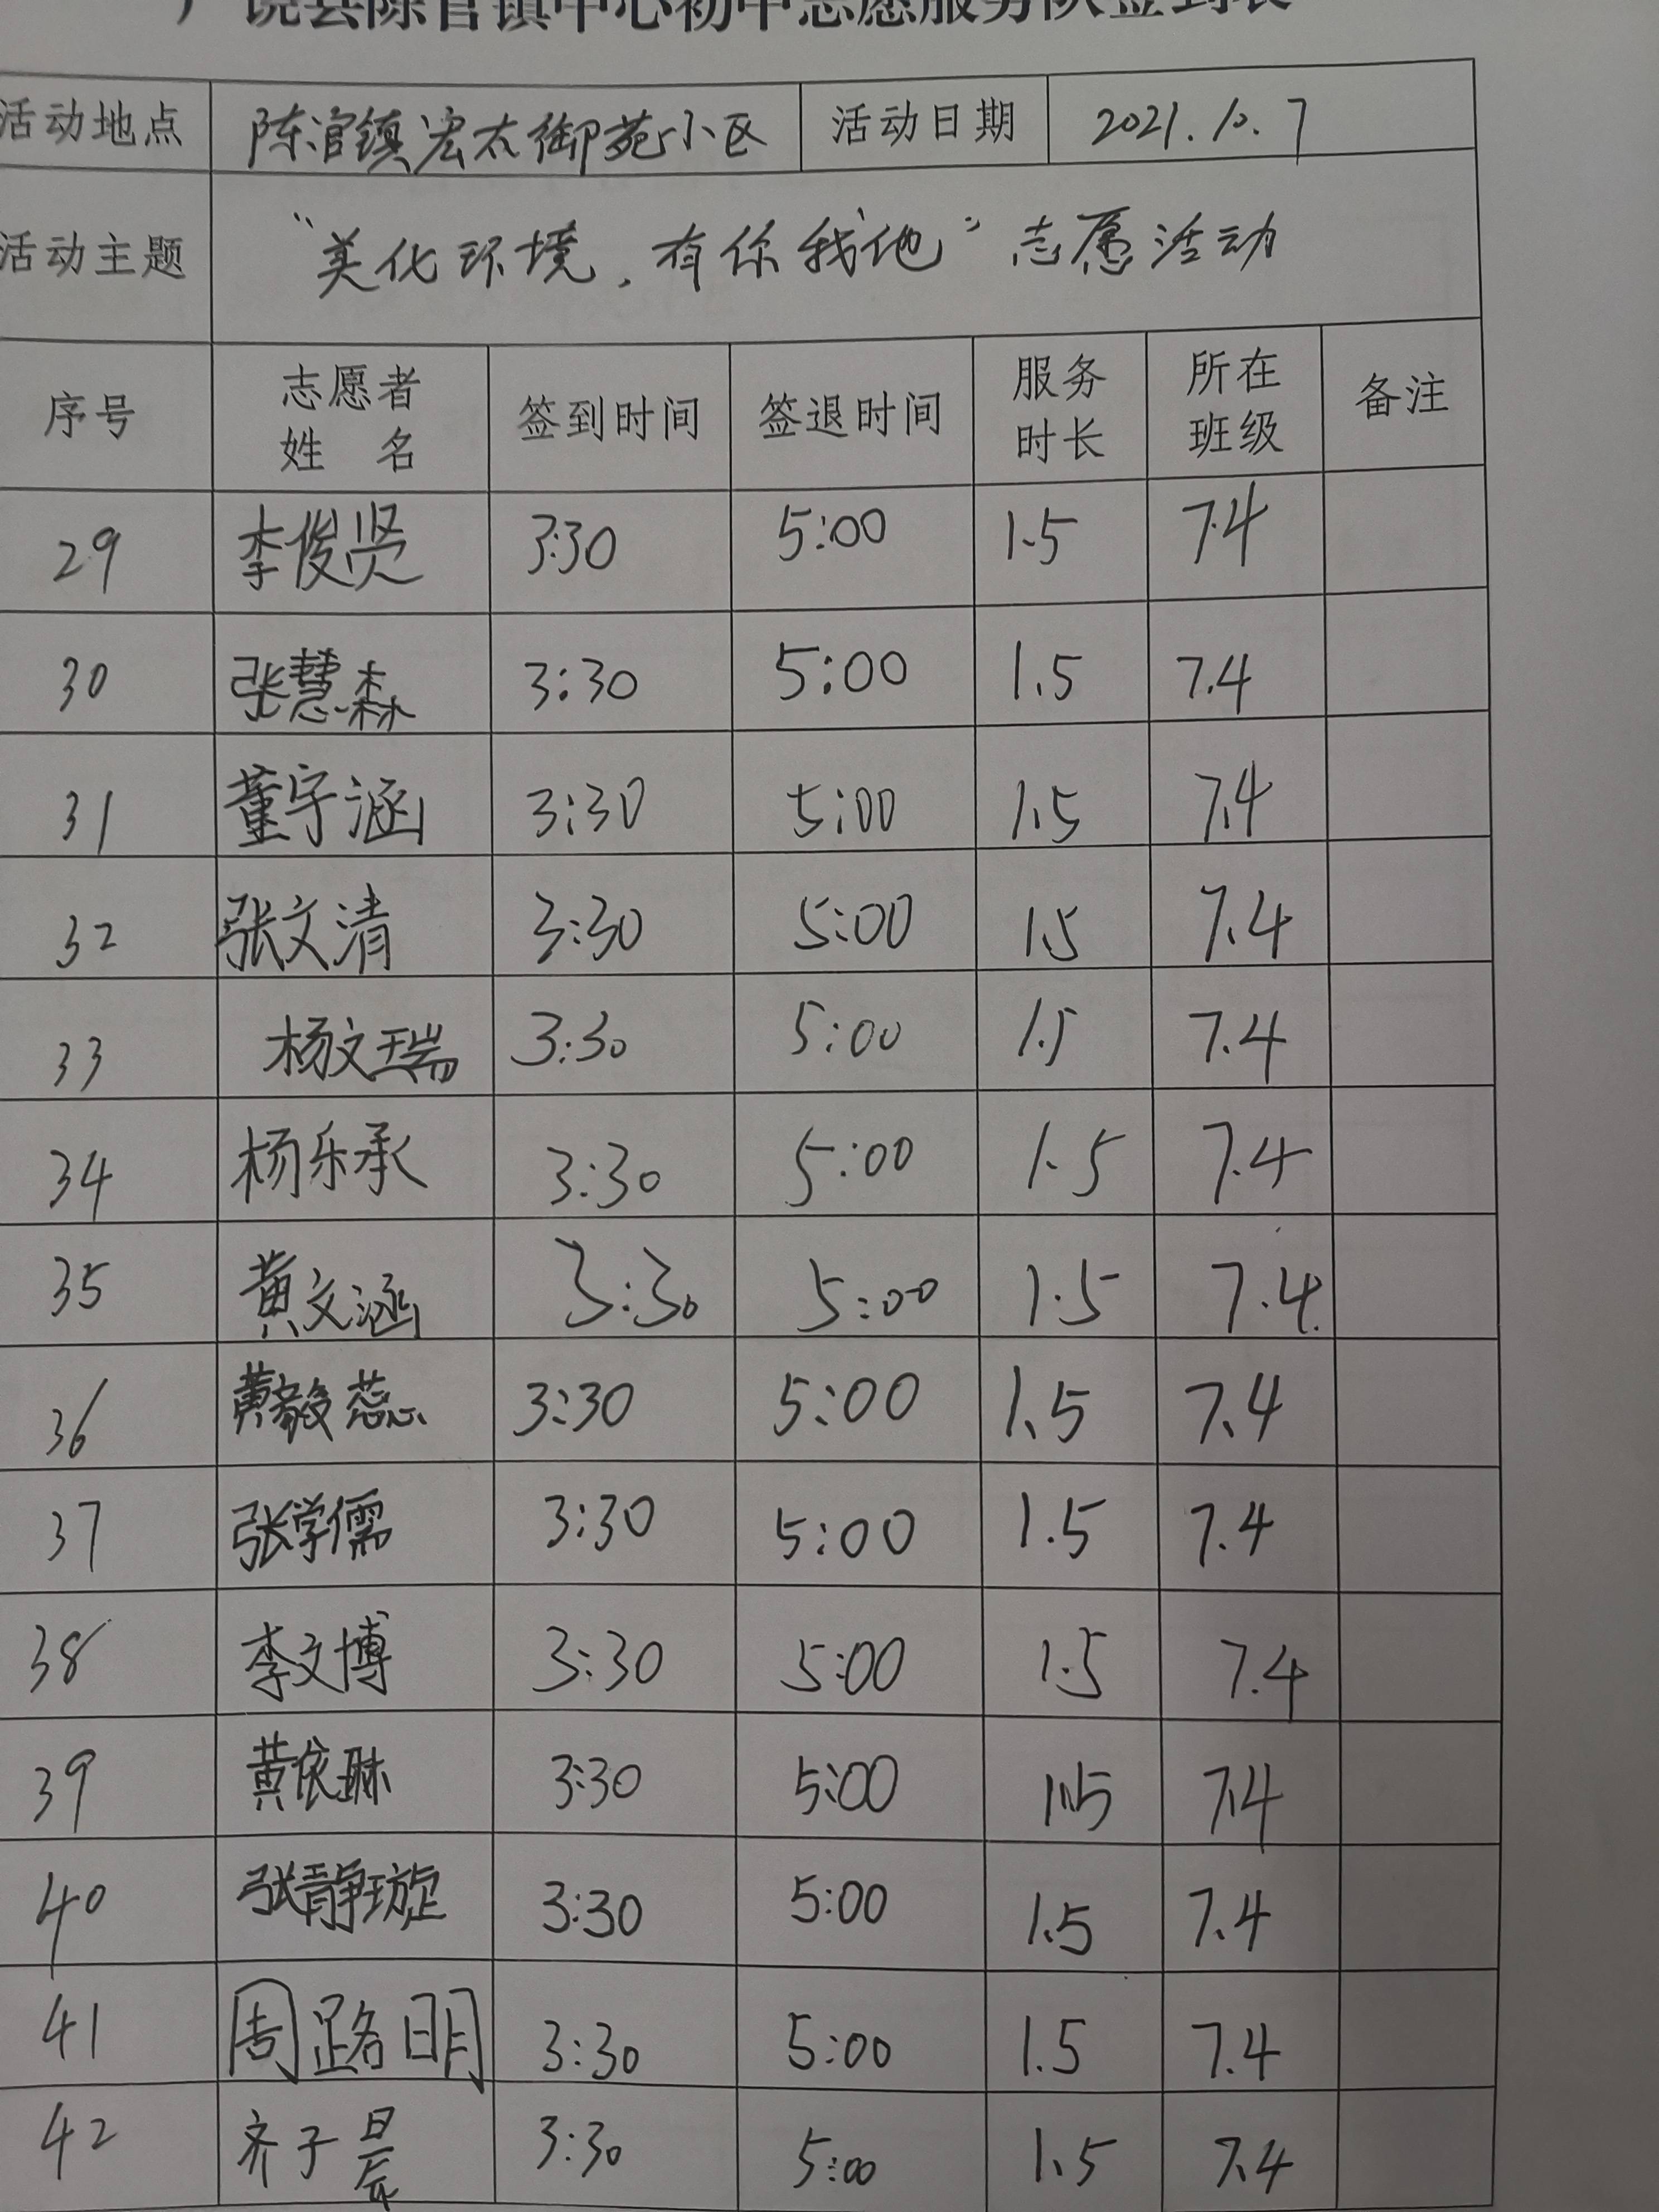 广饶县陈官镇中心初中志愿服务队签到表
活动地点 陈官镇宏太御苑小区 活动日期 2021.10.7
活动主题 “美化环境，有你我他”志愿活动
序号 志愿者姓 名 签到时间 签退时间 服务时长 所在班级 备注
29 李俊贤 3:30 5:00 1.5 7.4
30 张慧森 3:30 5:00 1.5 7.4
31 董宇涵 3:30 5:00 1.5 7.4
32 张文清 3:30 5:00 1.5 7.4
33 杨文瑞 3:30 5:00 1.5 7.4
34 杨乐承 3:30 5:00 1.5 7.4
35 黄文涵 3:30 5:00 1.5 7.4.
36 黄毅蕊 3:30 5:00 1.5 7.4
37 张学儒 3:30 5:00 1.5 7.4
38 李文博 3:30 5:00 1.5 7.4
39 黄依琳 3:30 5:00 1.5 7.4
40 张静璇 3:30 5:00 1.5 7.4
41 周路明 3:30 5:00 1.5 7.4
42 齐子晨 3:30 5:00 1.5 7.4